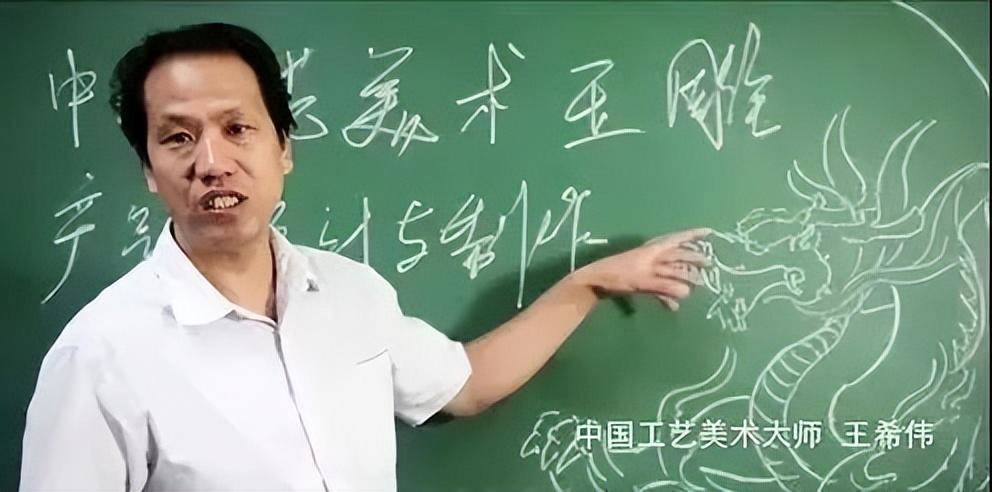 中 艺美术玉雕
产品设计与制作
中国工艺美术大师 王希伟